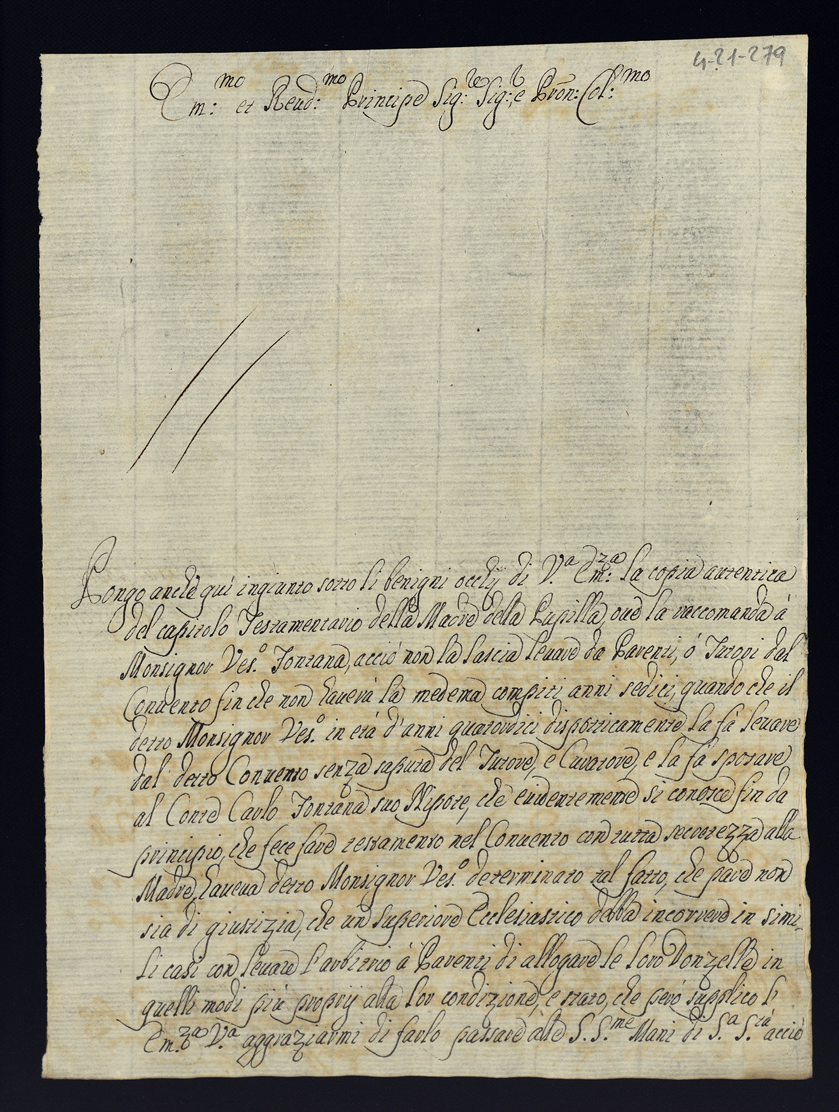 4-21-279
Em:mo et Reud:mo Principe Sig:re Sig:re Pron: Col:mo
Pongo anche qui ingiunto sotto li benigni occhij di V.a Em:za la copia autentica
del capitolo Testamentario della Madre della Pupilla, oue la raccomanda á
Monsignor Ves.o Fontana, acció non la lascia leuare da Parenti, ó Tutori dal
Conuento fin che non hauerá la medema compiti anni sedici, quando che il
detto Monsignor Ves.o in etá d'anni quatordici dispoticamente la fá leuare
dal detto Conuento senza saputa del Tutore, e Curatore, e la fá sposare
al Conte Carlo Fontana suo Nipote, che euidentemente si conosce fin da
principio, che fece fare testamento nel Conuento con tutta secretezza alla
Madre, haueua detto Monsignor Ves.o determinato tal fatto, che pare non
sia di giustizia, che un Superiore Ecclesiastico debba incorrere in simi-
li casi con leuare l'arbitrio á Parenti di allogare le loro Donzelle in
quelli modi piú proprij alla lor condizione, e stato, che peró supplico l'
Em.za V.a aggraziarmi di farlo passare alle S.S.me Mani di S.a S.tá acció